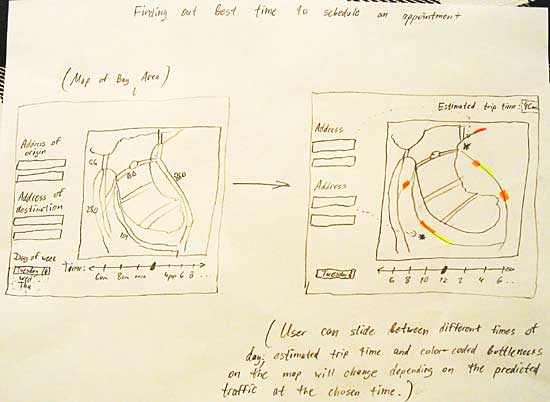 Finding out best time to schedule an appointment
(Map of Bay Area)
Address of
origin
Address of
destination
Day of week
Tuesday
Wed
Thu
80
580
280
101
Time:
6am 8am 4pm 6 8 ...
Estimated trip time:
Address
Address
Tuesday
6 8 10 12 2 4 6 ..
(User can slide between different times of
day; estimated trip time and color-coded bottlenecks
on the map will change depending on the predicted
traffic at the chosen time.)